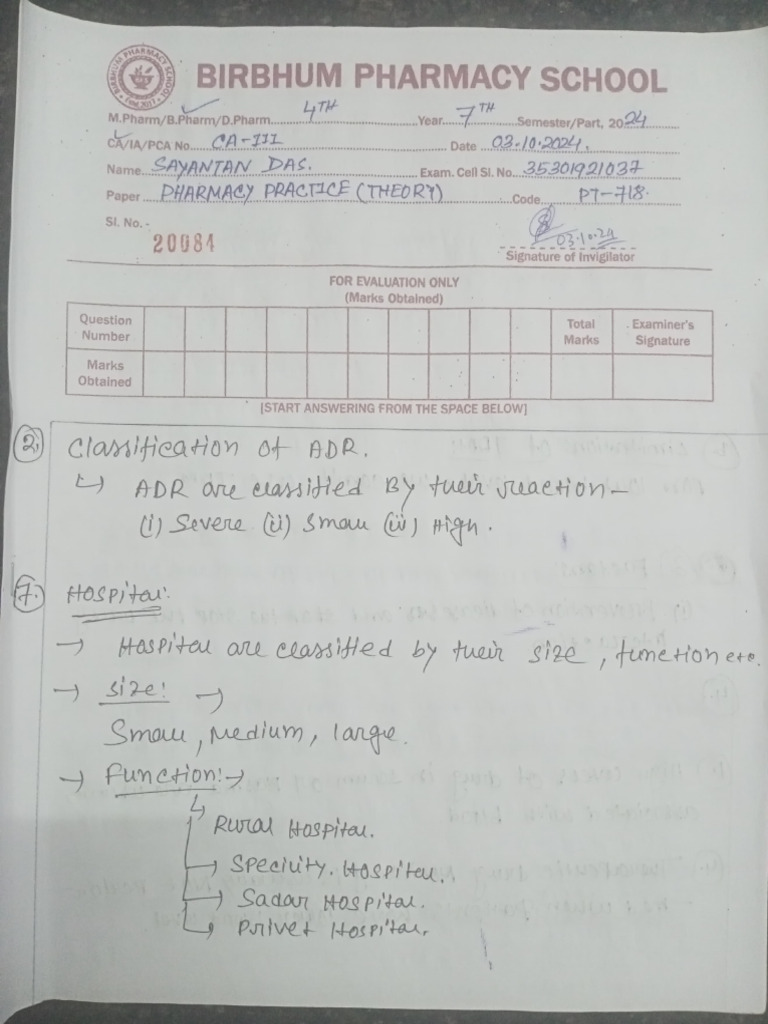 BIRBHUM PHARMACY SCHOOL
BIRBHUM PHARMACY SCHOOL
M.Pharm/B.Pharm/D.Pharm 4TH Year 7TH Semester/Part, 2024
CA/IA/PCA No. CA-III Date 03.10.2024.
Name SAYANTAN DAS. Exam. Cell Sl. No. 35301921037
Paper PHARMACY PRACTICE (THEORY) Code PT-718.
Sl. No. -
20084
03.10.24
Signature of Invigilator
FOR EVALUATION ONLY
(Marks Obtained)
Question Number Total Marks Examiner's Signature
Marks Obtained
[START ANSWERING FROM THE SPACE BELOW]
2. Classification of ADR.
↳ ADR are classified By their reaction-
(i) Severe (ii) Small (iii) High.
7. Hospital:
→ Hospital are classified by their size, function etc.
→ Size: →
Small, Medium, large.
→ Function:→
↳ Rural Hospital.
→ Speciuty. Hospital.
→ Sadar Hospital.
↳ Privet Hospital.